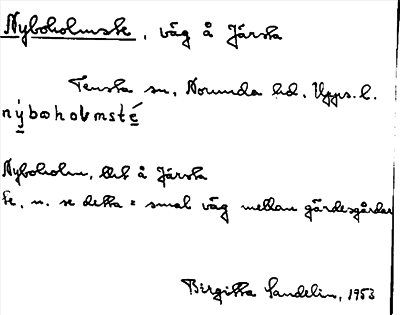 Nyboholmste, väg å Järsta
Tensta sn, Norunda hd, Upps. l.
nýboholmsté
Nyboholm, lht å Järsta
te, n. se detta = smal väg mellan gärdesgårdar
Birgitta Sandelin, 1953